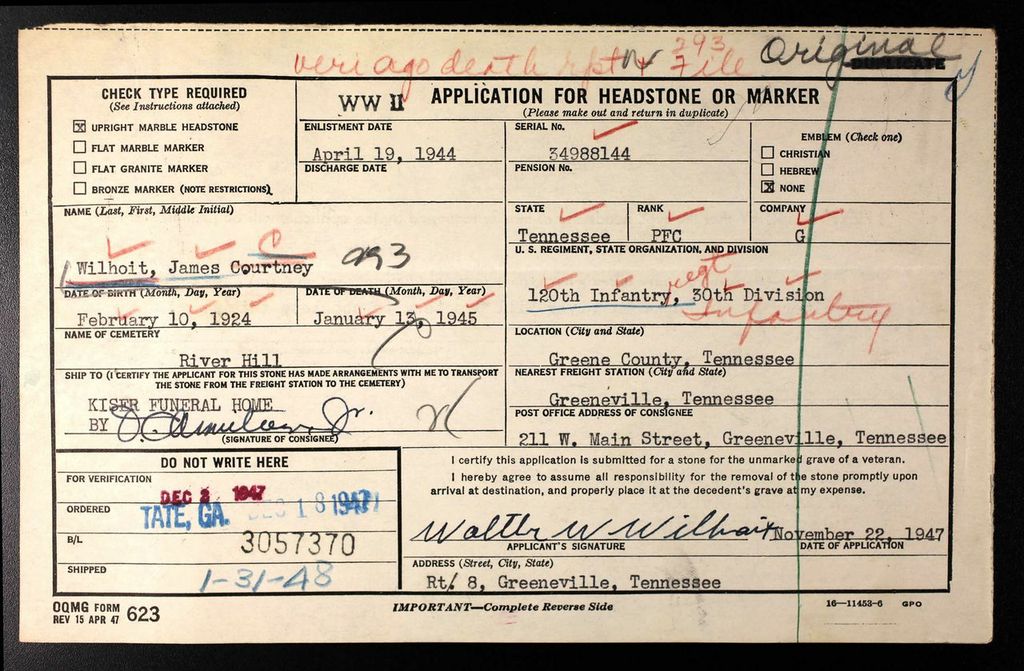 293
veri ago death rpt + File Original
DUPLICATE
CHECK TYPE REQUIRED
(See Instructions attached)
☒ UPRIGHT MARBLE HEADSTONE
☐ FLAT MARBLE MARKER
☐ FLAT GRANITE MARKER
☐ BRONZE MARKER (NOTE RESTRICTIONS)
WW II APPLICATION FOR HEADSTONE OR MARKER
(Please make out and return in duplicate)
ENLISTMENT DATE
April 19, 1944
DISCHARGE DATE
SERIAL No.
34988144
PENSION No.
EMBLEM (Check one)
☐ CHRISTIAN
☐ HEBREW
☒ NONE
NAME (Last, First, Middle Initial)
Wilhoit, James Courtney 293
C
STATE
Tennessee
RANK
PFC
COMPANY
G
U. S. REGIMENT, STATE ORGANIZATION, AND DIVISION
regt
120th Infantry, 30th Division
Infantry
DATE OF BIRTH (Month, Day, Year)
February 10, 1924
DATE OF DEATH (Month, Day, Year)
January 13, 1945
NAME OF CEMETERY
River Hill
LOCATION (City and State)
Greene County, Tennessee
SHIP TO (I CERTIFY THE APPLICANT FOR THIS STONE HAS MADE ARRANGEMENTS WITH ME TO TRANSPORT
THE STONE FROM THE FREIGHT STATION TO THE CEMETERY)
KISER FUNERAL HOME
BY Jr.
(SIGNATURE OF CONSIGNEE)
NEAREST FREIGHT STATION (City and State)
Greeneville, Tennessee
POST OFFICE ADDRESS OF CONSIGNEE
211 W. Main Street, Greeneville, Tennessee
DO NOT WRITE HERE
FOR VERIFICATION
DEC 2 1947
ORDERED
TATE, GA. DEC 18 1947
B/L
3057370
SHIPPED
1-31-48
I certify this application is submitted for a stone for the unmarked grave of a veteran.
I hereby agree to assume all responsibility for the removal of the stone promptly upon
arrival at destination, and properly place it at the decedent's grave at my expense.
Walter W Wilhoit November 22, 1947
APPLICANT'S SIGNATURE DATE OF APPLICATION
ADDRESS (Street, City, State)
Rt/ 8, Greeneville, Tennessee
OQMG FORM
REV 15 APR 47 623
IMPORTANT—Complete Reverse Side
16—11453-6 GPO